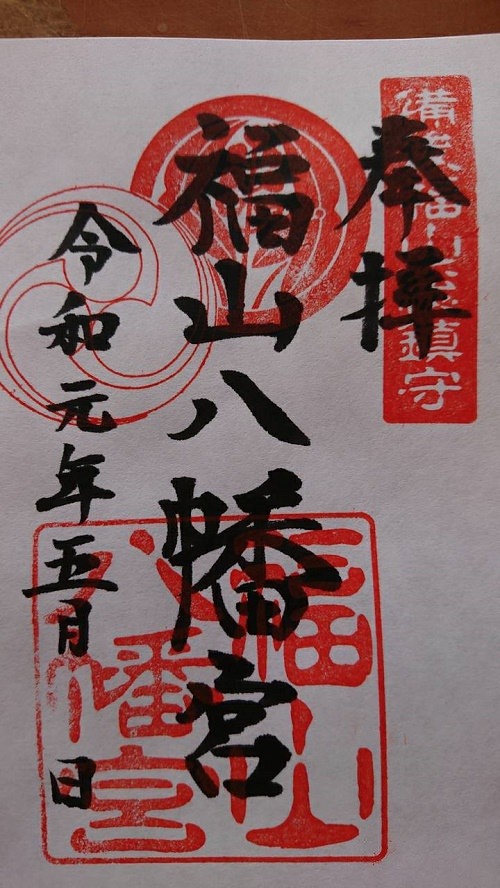 奉拝
福山八幡宮
令和元年五月 日
備後福山総鎮守
福山八幡宮